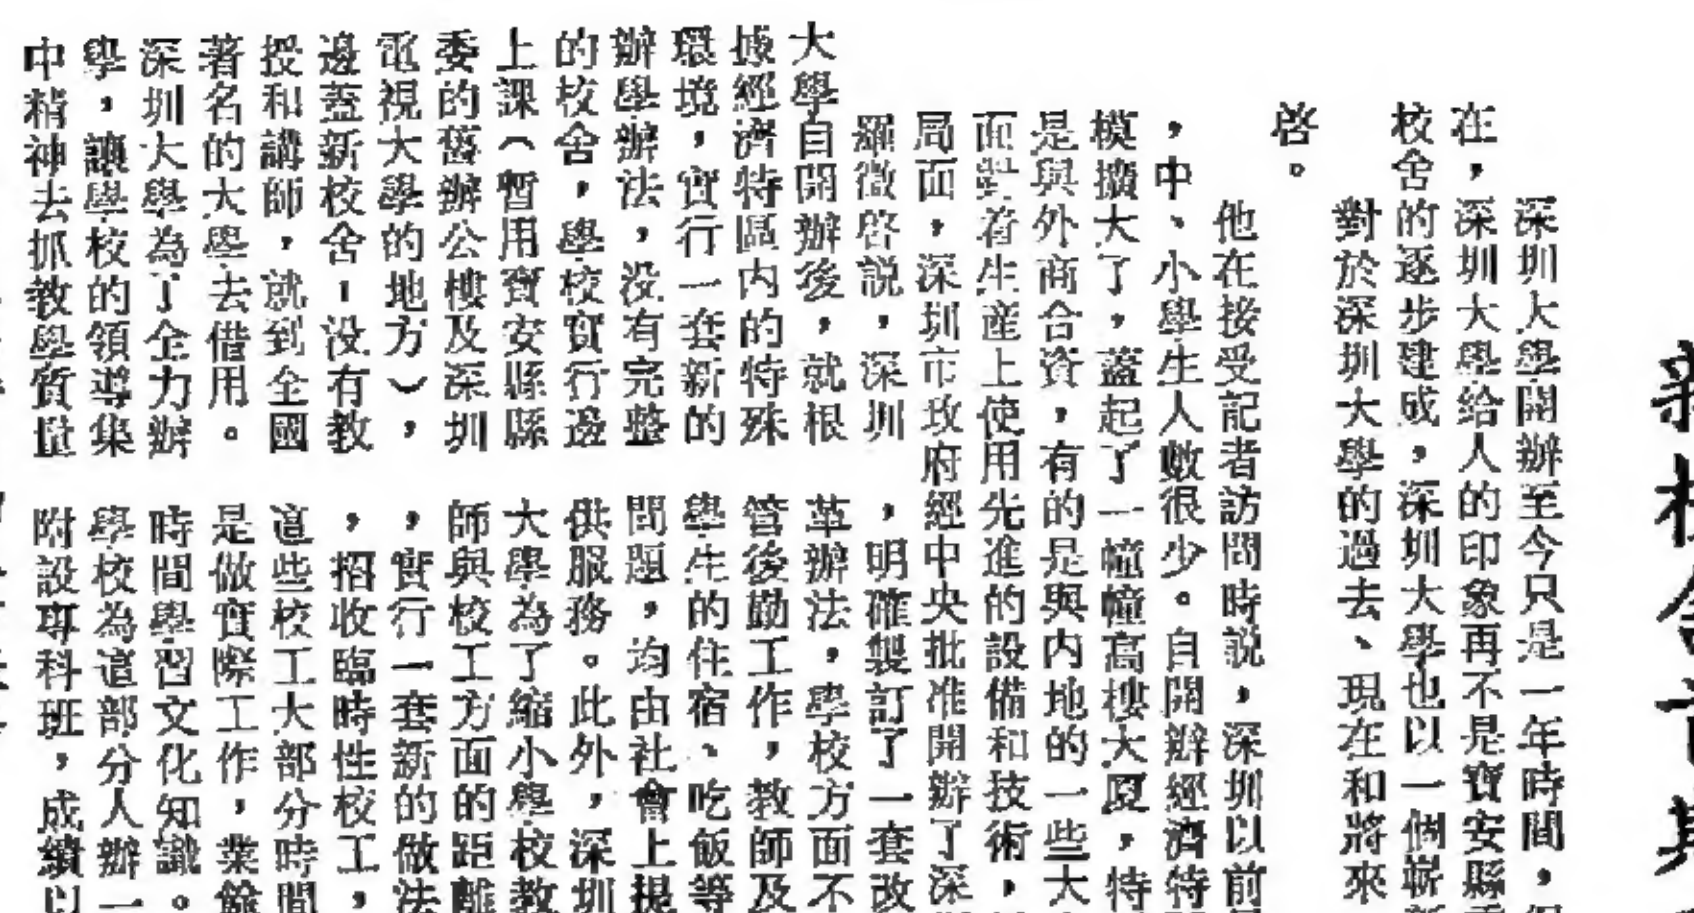 深圳大學開辦至今只是一年時間，
在，深圳大學給人的印象再不是寶安縣
校舍的逐步建成，深圳大學也以一個嶄
對於深圳大學的過去、現在和將來
啓。
他在接受記者訪問時説，深圳以前
，中、小學生人數很少。自開辦經濟特
模擴大了，蓋起了一幢幢高樓大厦，特
是與外商合資，有的是與内地的一些大
面對着生産上使用先進的設備和技術，
局面，深圳市政府經中央批准開辦了深
羅徵啓説，深圳
大學自開辦後，就根
據經濟特區内的特殊
環境，實行一套新的
辦學辦法，没有完整
的校舍，學校實行邊
上課（暫用寶安縣縣
委的舊辦公樓及深圳
電視大學的地方），
邊蓋新校舍；没有教
授和講師，就到全國
著名的大學去借用。
深圳大學為了全力辦
學，讓學校的領導集
中精神去抓教學質量
，明確製訂了一套改
革辦法，學校方面不
管後勤工作，教師及
學生的住宿、吃飯等
問題，均由社會上提
供服務。此外，深圳
大學為了縮小學校教
師與校工方面的距離
，實行一套新的做法
，招收臨時性校工，
這些校工大部分時間
是做實際工作，業餘
時間學習文化知識。
學校為這部分人辦一
附設專科班，成績以